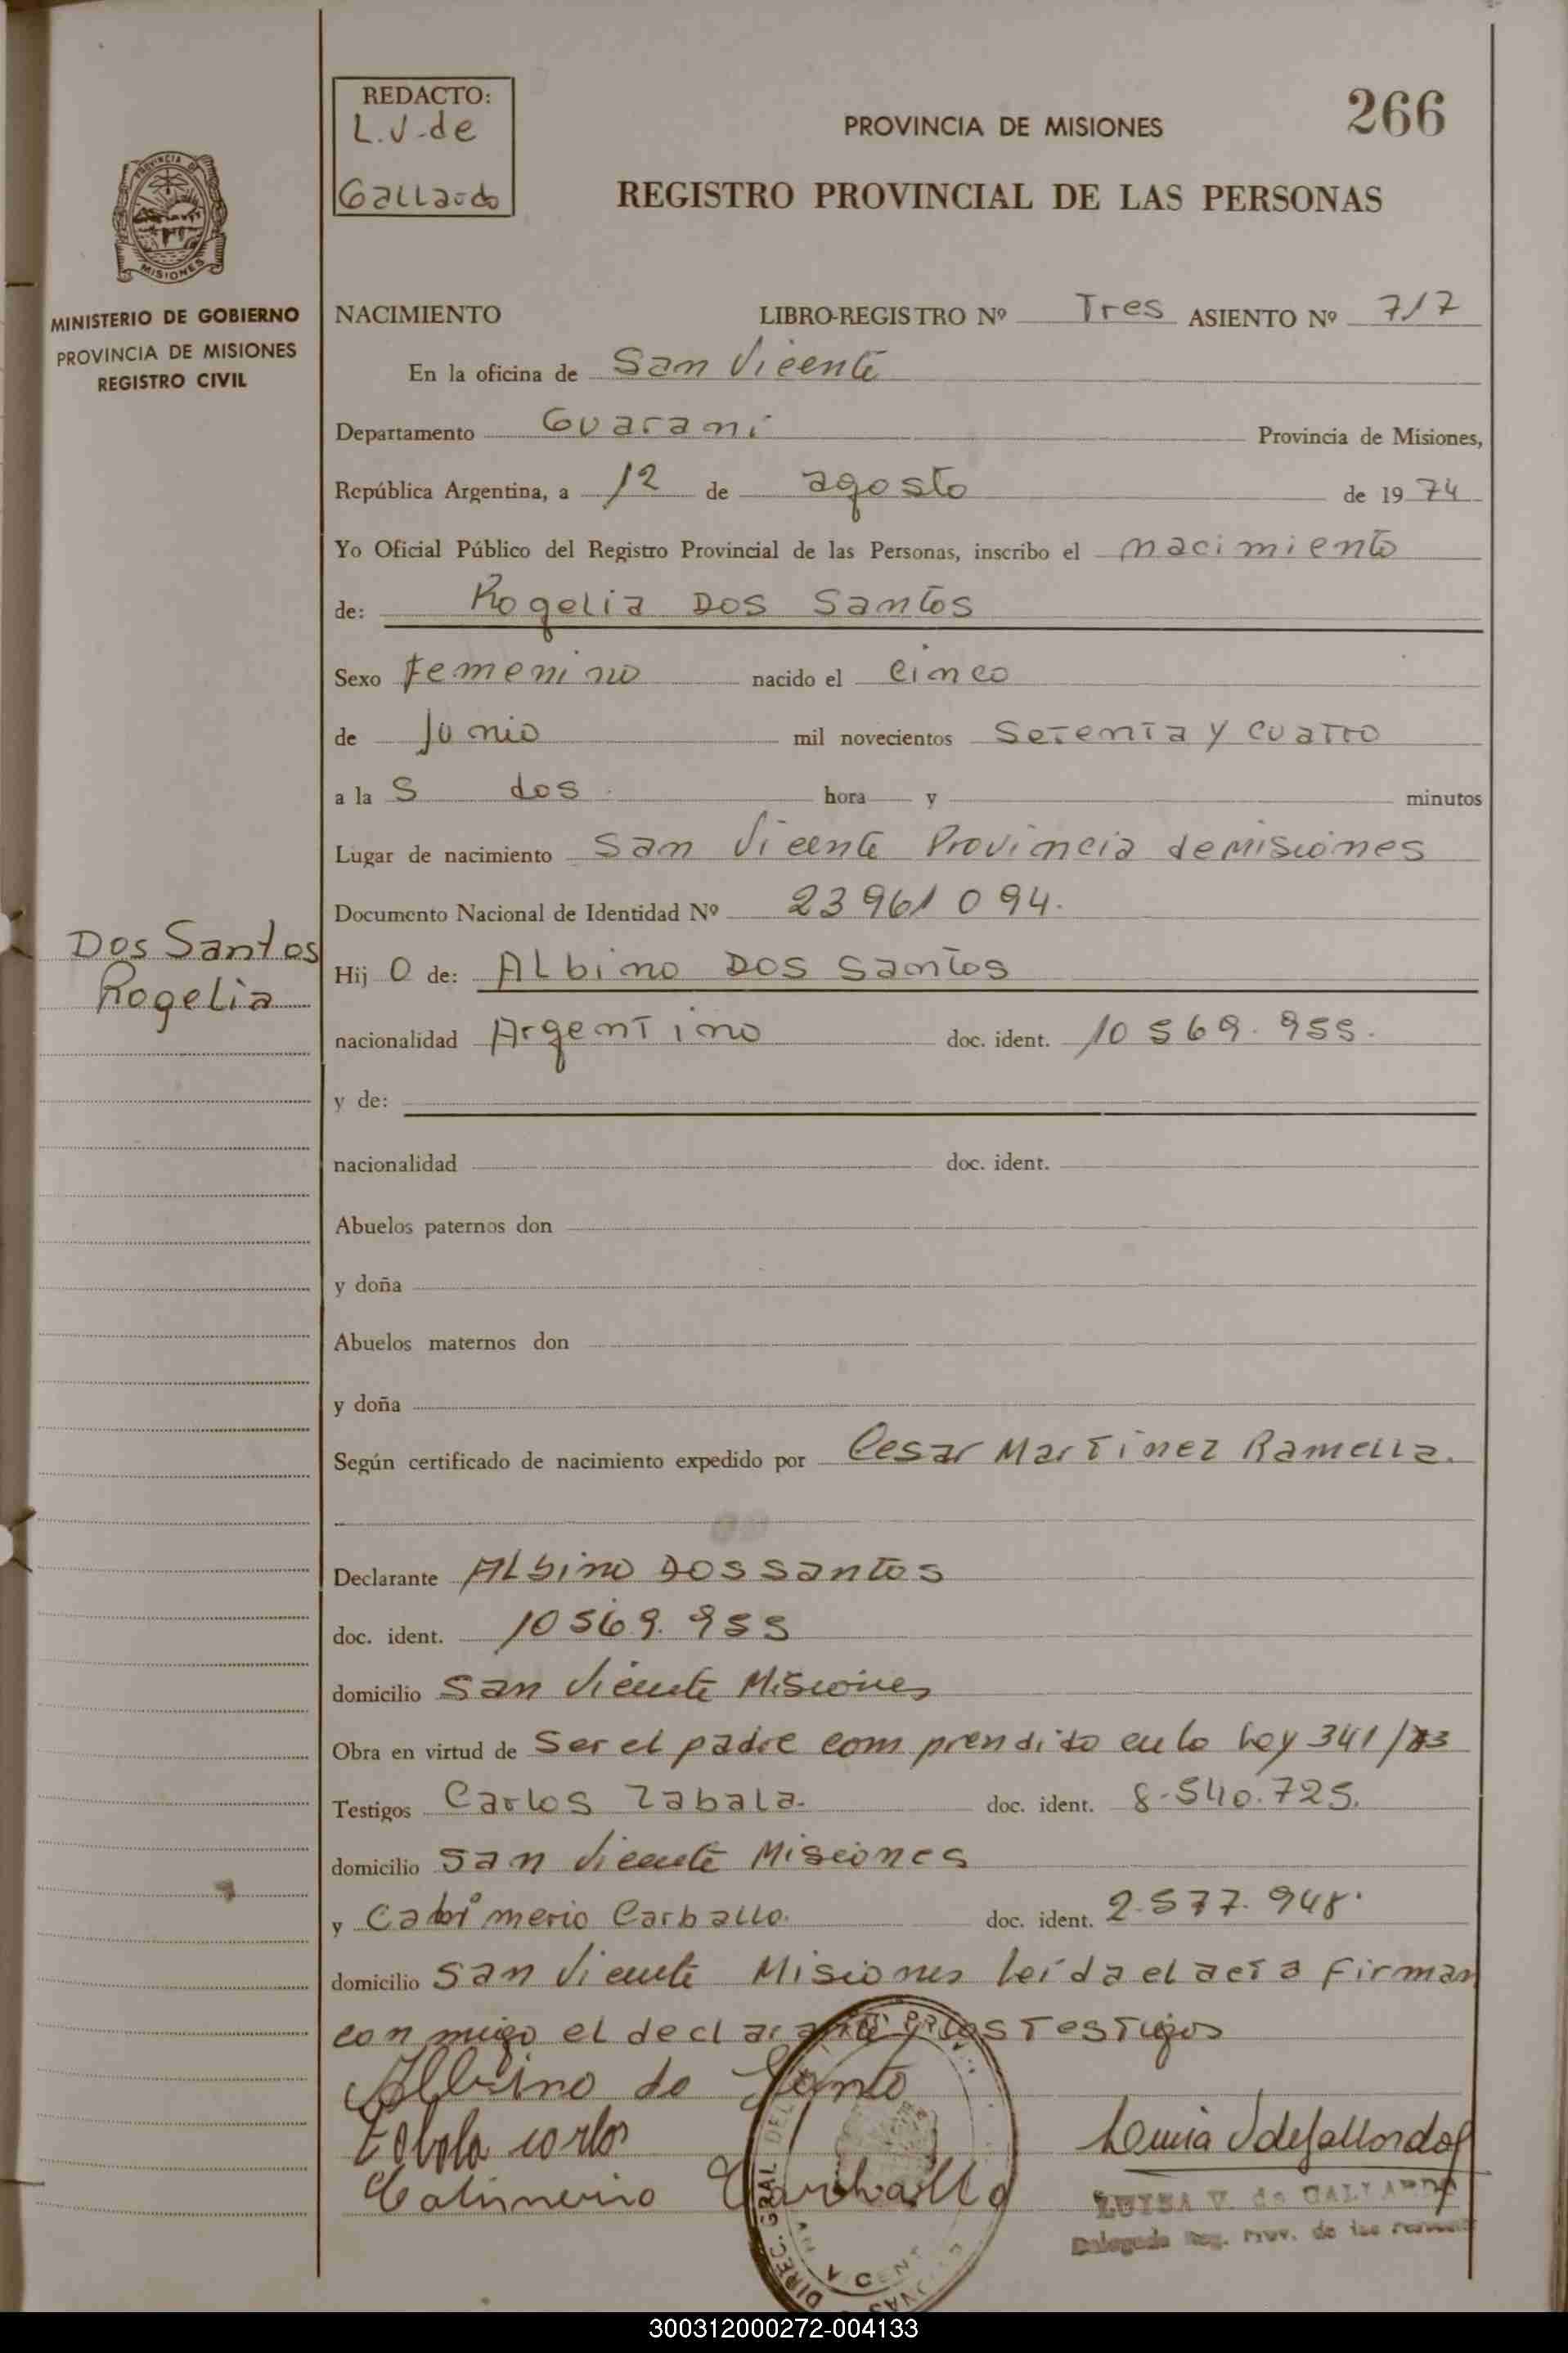 266
REDACTO:
L.V.de
Gallardo
PROVINCIA DE MISIONES
REGISTRO PROVINCIAL DE LAS PERSONAS
PROVINCIA DE
MISIONES
MINISTERIO DE GOBIERNO
PROVINCIA DE MISIONES
REGISTRO CIVIL
NACIMIENTO LIBRO-REGISTRO Nº Tres ASIENTO Nº 717
En la oficina de San Vicente
Departamento Guaraní Provincia de Misiones,
República Argentina, a 12 de agosto de 1974
Yo Oficial Público del Registro Provincial de las Personas, inscribo el nacimiento
de: Rogelia Dos Santos
Sexo femenino nacido el cinco
de Junio mil novecientos Setenta y cuatro
a la S dos hora y minutos
Lugar de nacimiento San Vicente Provincia de Misiones
Documento Nacional de Identidad Nº 23961094.
Dos Santos
Rogelia
Hij O de: Albino Dos Santos
nacionalidad Argentino doc. ident. 10569.955.
y de:
nacionalidad doc. ident.
Abuelos paternos don
y doña
Abuelos maternos don
y doña
Según certificado de nacimiento expedido por Cesar Martinez Ramella.
Declarante Albino Dos Santos
doc. ident. 10569.955
domicilio San Vicente Misiones
Obra en virtud de Ser el padre comprendido en la Ley 341/73
Testigos Carlos Zabala. doc. ident. 8.540.725.
domicilio San Vicente Misiones
y Carballo. doc. ident. 2.577.948.
domicilio San Vicente Misiones leída el acta firman
conmigo el declarante y los Testigos
Albino do Santo
Zabala carlos
Carballo
LUISA V. de GALLARDO
Delegada Reg. Prov. de las Personas
DIREC. GRAL DEL
300312000272-004133